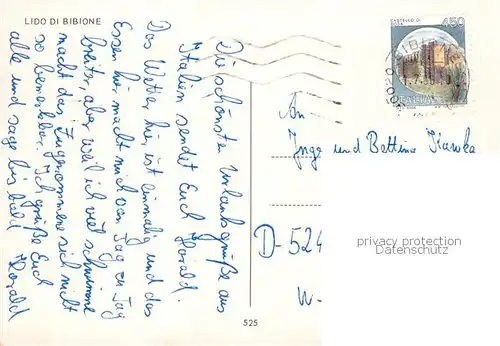 LIDO DI BIBIONE
Die schönsten Urlaubsgrüße aus
Italien sendet Euch Harald.
Das Wetter hier ist einmalig und das
Essen hier macht mich von Tag zu Tag
breiter, aber weil ich viel schwimme
macht das Zugenommene sich nicht
so bemerkbar. Ich grüße Euch
alle und sage bis bald Harald
CASTELLO DI
450
ITALIA
An
Inge und Bettina
D-524
W-
privacy protection
Datenschutz
525